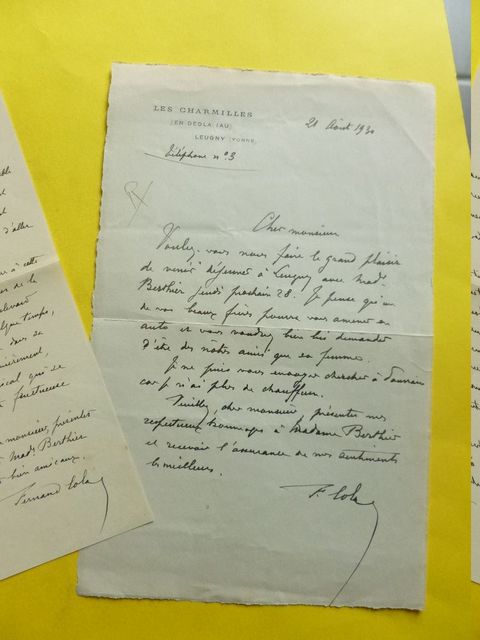 LES CHARMILLES
(EN DEÇLA IAU)
LEUGNY (YONNE)
Téléphone nº 3
21 Août 1930
Cher monsieur
Voulez-vous nous faire le grand plaisir
de venir déjeuner à Leugny avec Mad.
Berthier jeudi prochain 28. Je pense qu'un
de vos beaux frères pourra vous amener en
auto et vous voudrez bien lui demander
d'être des nôtres ainsi que sa femme.
Je ne puis vous envoyer chercher à
car je n'ai plus de chauffeur.
Veuillez, cher monsieur, présenter mes
respectueux hommages à Madame Berthier
et recevoir l'assurance de mes sentiments
les meilleurs.
d'aller
à cette
de la
boulevard
temps,
se
qui se
monsieur, présenter
Mad. Berthier
bien amicaux.
Fernand